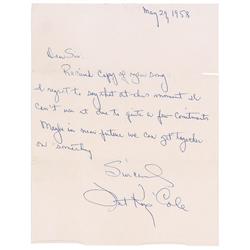 May 29, 1958
Dear Sir.
Received Copy of your song
I regret to say that at this moment I
can't use it due to quite a few contracts
Maybe in near future we can get together
on something
Sincerely
Nat King Cole